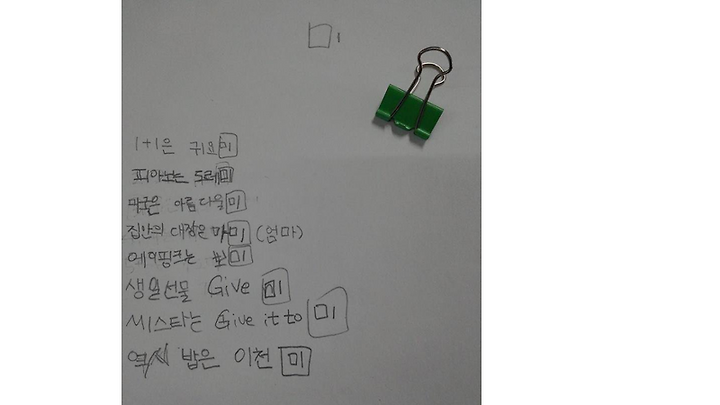 미
1+1은 귀요미
피아노는 도레미
미국은 아름다울미
집안의 대장은 마미 (엄마)
에이핑크는 뽀미
생일선물 Give 미
씨스타는 Give it to 미
역시 밥은 이천 미